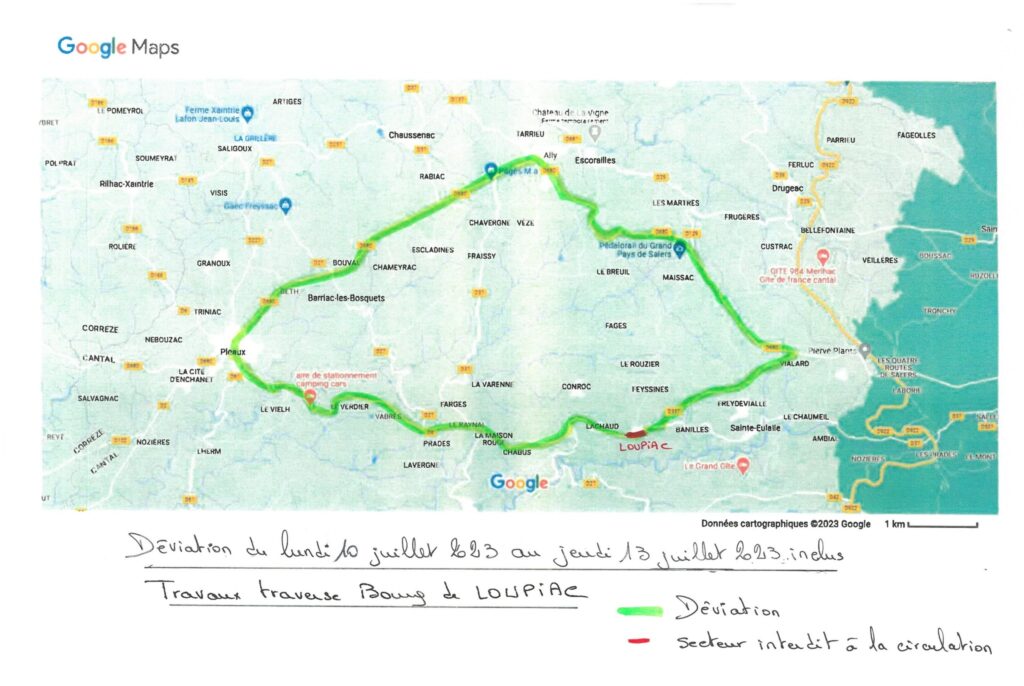 Google Maps
ARTIGES
LE POMEYROL
Ferme Xaintrie
Lafon Jean-Louis
Château de La Vigne
LA GRILLÈRE
SALIGOUX
Chaussenac
TARRIEU
PARRIEU
FAGEOLLES
SOUMEYRAT
RABIAC
Ally
Escorailles
Pages M a
FERLUC
Rilhac-Xaintrie
VISIS
Drugeac
Gaec Freyssac
LES MARTRES
FRUGÈRES
CHAVERGNE
VÈZE
BELLEFONTAINE
ROLIÈRE
ESCLADINES
FRAISSY
Pédalorail du Grand
Pays de Salers
CUSTRAC
GRANOUX
BOUVAL
CHAMEYRAC
LE BREUIL
MAISSAC
GITE 984 Merlhac
Gîte de france cantal
VEILLÈRES
BOUSSAC
BETH
Barriac-les-Bosquets
TRINIAC
TRONCHY
CORREZE
NEBOUZAC
FAGES
CANTAL
Pleaux
LA CITÉ
D'ENCHANET
LE ROUZIER
VIALARD
Pierve Plants
LES QUATRE
ROUTES
DE SALERS
aire de stationnement
camping cars
LA VARENNE
CONROC
FEYSSINES
LABORIE
SALVAGNAC
LE VIELH
LE VERDIER
FARGES
FREYDEVIALLE
VABRES
LE RAYNAL
LACHAUD
BANILLES
Sainte-Eulalie
LE CHAUMEIL
CORREZE
CANTAL
NOZIÈRES
PRADES
LA MAISON
ROUGE
LOUPIAC
AMBIAL
LHERM
CHABUS
LAVERGNE
Le Grand Gîte
NOZIÈRES
LES PRADES
LE MONT
Google
Données cartographiques ©2023 Google 1 km
Déviation du lundi 10 juillet 2023 au jeudi 13 juillet 2023 inclus
Travaux traverse Bourg de LOUPIAC
Déviation
secteur interdit à la circulation